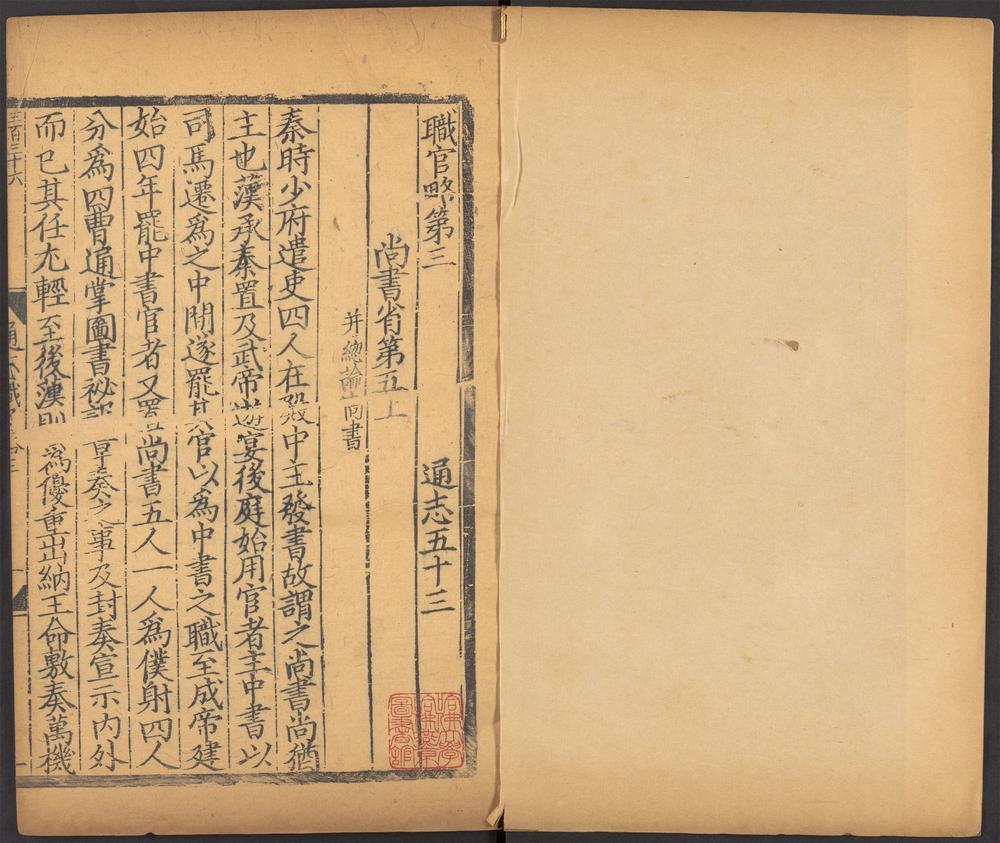 職官略第三 通志五十三
尚書省第五上
并總論尚書
秦時少府遣吏四人在殿中主發書故謂之尚書尚猶
主也漢承秦置及武帝遊宴後庭始用宦者主中書以
司馬遷爲之中間遂罷其官以爲中書之職至成帝建
始四年罷中書宦者又置尚書五人一人爲僕射四人
分爲四曹通掌圖書祕記章奏之事及封奏宣示內外
而已其任尤輕至後漢則爲優重出納王命敷奏萬機
三百三十六
哈佛大學哈佛燕京圖書館